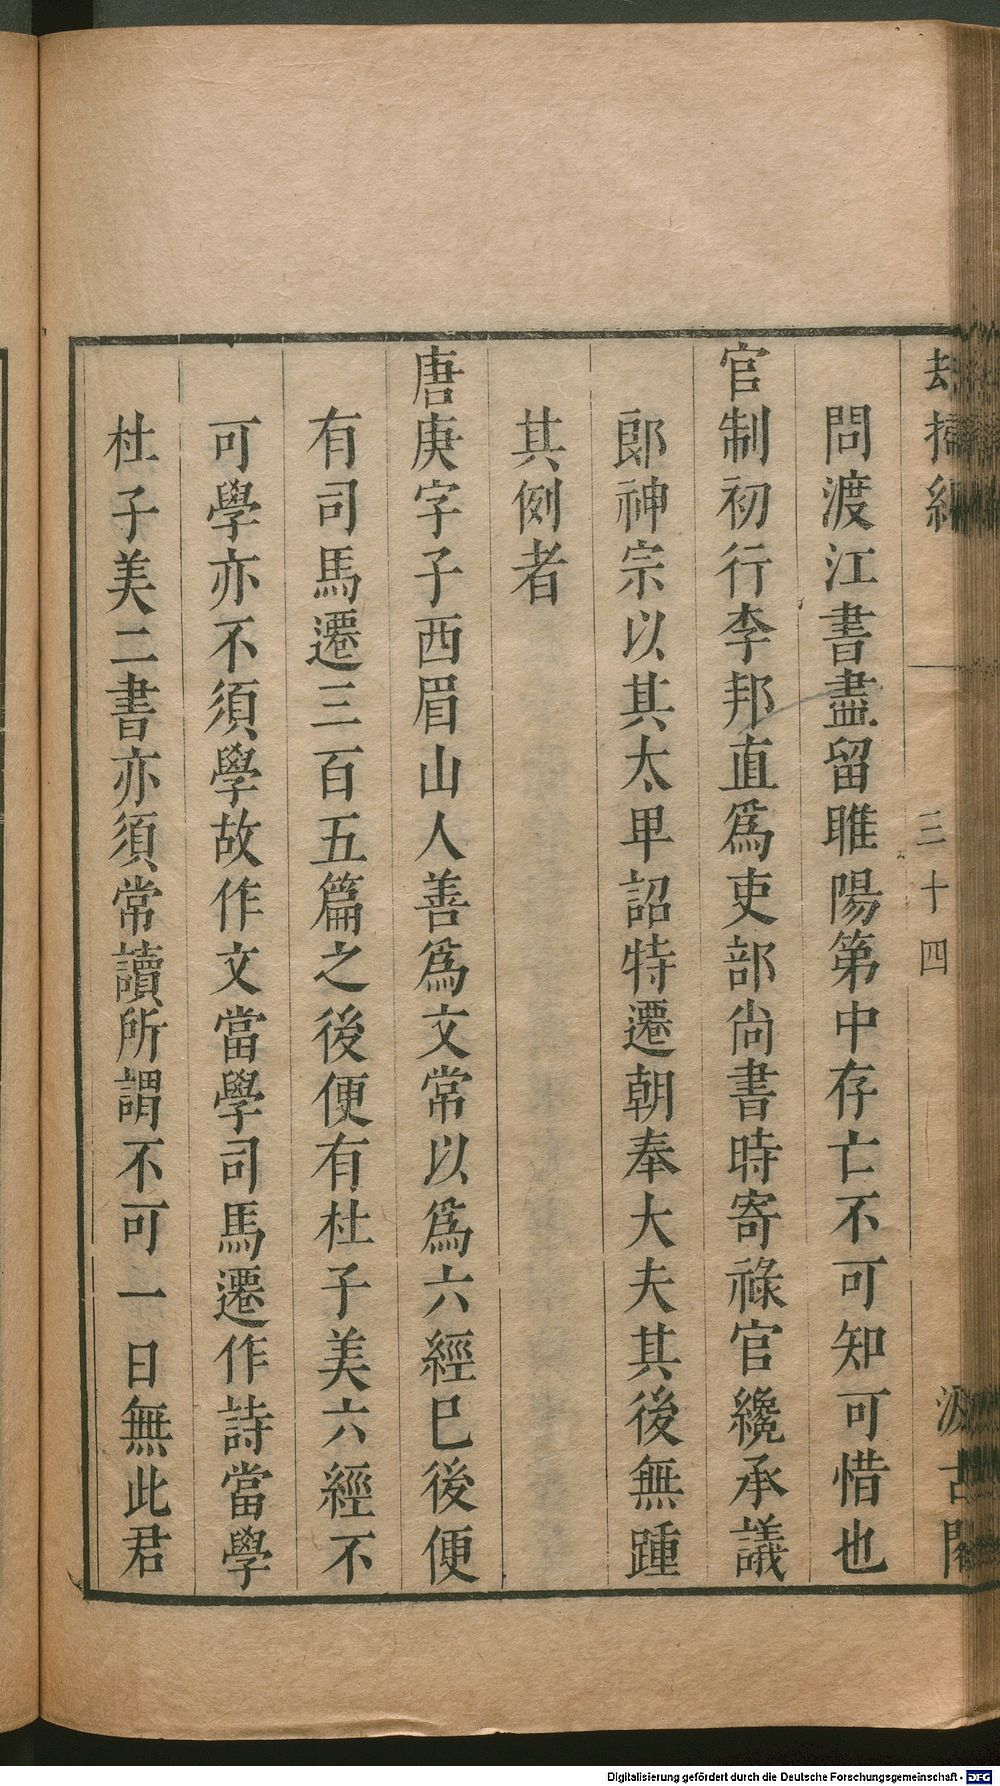 却掃編
三十四
汲古閣
問渡江書盡留睢陽第中存亡不可知可惜也
官制初行李邦直爲吏部尚書時寄祿官纔承議
郎神宗以其太卑詔特遷朝奉大夫其後無踵
其例者
唐庚字子西眉山人善爲文常以爲六經已後便
有司馬遷三百五篇之後便有杜子美六經不
可學亦不須學故作文當學司馬遷作詩當學
杜子美二書亦須常讀所謂不可一日無此君
Digitalisierung gefördert durch die Deutsche Forschungsgemeinschaft - DFG